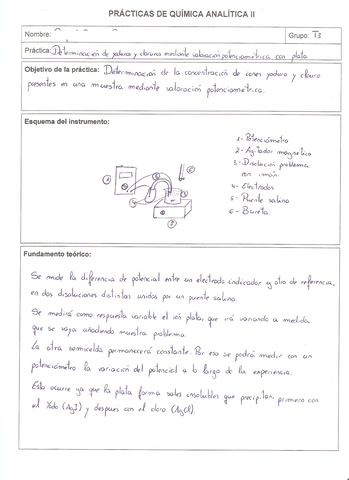 PRÁCTICAS DE QUÍMICA ANALÍTICA II
Nombre:
Grupo: T3
Práctica: Determinación de yoduros y cloruros mediante valoración potenciométrica con plata
Objetivo de la práctica: Determinación de la concentración de iones yoduro y cloruro
presentes en una muestra mediante valoración potenciométrica.
Esquema del instrumento:
1- Potenciómetro
2- Agitador magnético
3- Disolución problema
con imán.
4- Electrodos
5- Puente salino
6- Bureta.
Fundamento teórico:
Se mide la diferencia de potencial entre un electrodo indicador y otro de referencia,
en dos disoluciones distintas unidas por un puente salino.
Se medirá como respuesta variable el ión plata, que irá variando a medida
que se vaya añadiendo muestra problema.
La otra semicelda permanecerá constante. Por eso se podrá medir con un
potenciómetro la variación del potencial a lo largo de la experiencia.
Esto ocurre ya que la plata forma sales insolubles que precipitan, primero con
el Yodo (AgI) y después con el cloro (AgCl).